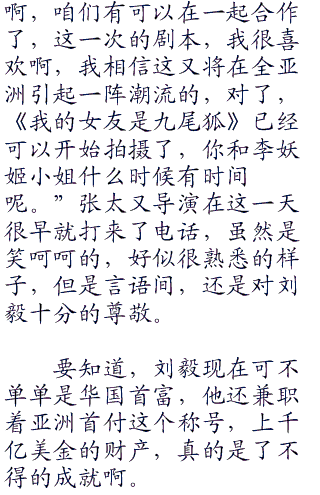 啊，咱们有可以在一起合作
了，这一次的剧本，我很喜
欢啊，我相信这又将在全亚
洲引起一阵潮流的，对了，
《我的女友是九尾狐》已经
可以开始拍摄了，你和李妖
姬小姐什么时候有时间
呢。”张太又导演在这一天
很早就打来了电话，虽然是
笑呵呵的，好似很熟悉的样
子，但是言语间，还是对刘
毅十分的尊敬。
要知道，刘毅现在可不
单单是华国首富，他还兼职
着亚洲首付这个称号，上千
亿美金的财产，真的是了不
得的成就啊。